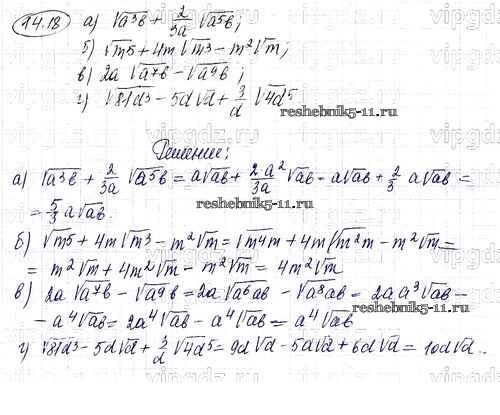 14.18 а) √a³b + 2/3a √a⁵b;
б) √m5 + 4m√m3 - m²√m;
в) 2a √a⁷b - √a⁹b;
г) √81d³ - 5d√d + 3/d √4d⁵
reshebnik5-11.ru
Решение:
а) √a³b + 2/3a √a⁵b = a√ab + 2a²/3a √ab = a√ab + 2/3 a√ab =
= 5/3 a√ab.
б) √m5 + 4m√m³ - m²√m = √m⁴m + 4m√m²m - m²√m =
= m²√m + 4m²√m - m²√m = 4m²√m
в) 2a √a⁷b - √a⁹b = 2a√a⁶ab - √a⁸ab = 2a a³√ab -
- a⁴√ab = 2a⁴√ab - a⁴√ab = a⁴√ab
reshebnik5-11.ru
г) √81d³ - 5d√d + 3/d √4d⁵ = 9d√d - 5d√d + 6d√d = 10d√d.
reshebnik5-11.ru